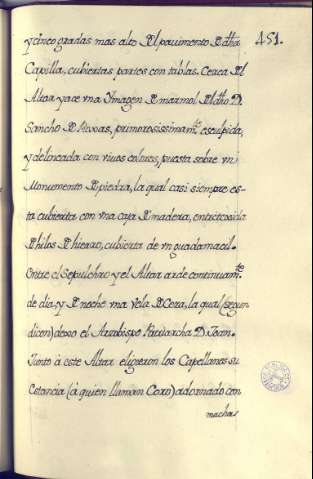 451.
y cinco gradas mas alto Del pauimento De dha
Capilla, cubiertas partes con tablas. Cerca Del
Altar yace vna Ymagen De marmol Del dho D.
Sancho De Roxas, primorosissimamte. esculpida,
y delineada con viuos colores, puesta sobre vn
Monumento De piedra, la qual casi siempre es-
ta cubierta con vna caxa De madera, entretexida
De hilos De hierro, cubierta de vn guadamacil.
Entre el Sepulchro y el Altar arde continuamte.
de dia, y De noche vna Vela De Cera, la qual (segun
dicen) dexo el Arzobispo Patriarcha D. Joan.
Junto à este Altar eligieron los Capellanes su
Estancia (à quien llaman Coro) adornado con
muchas